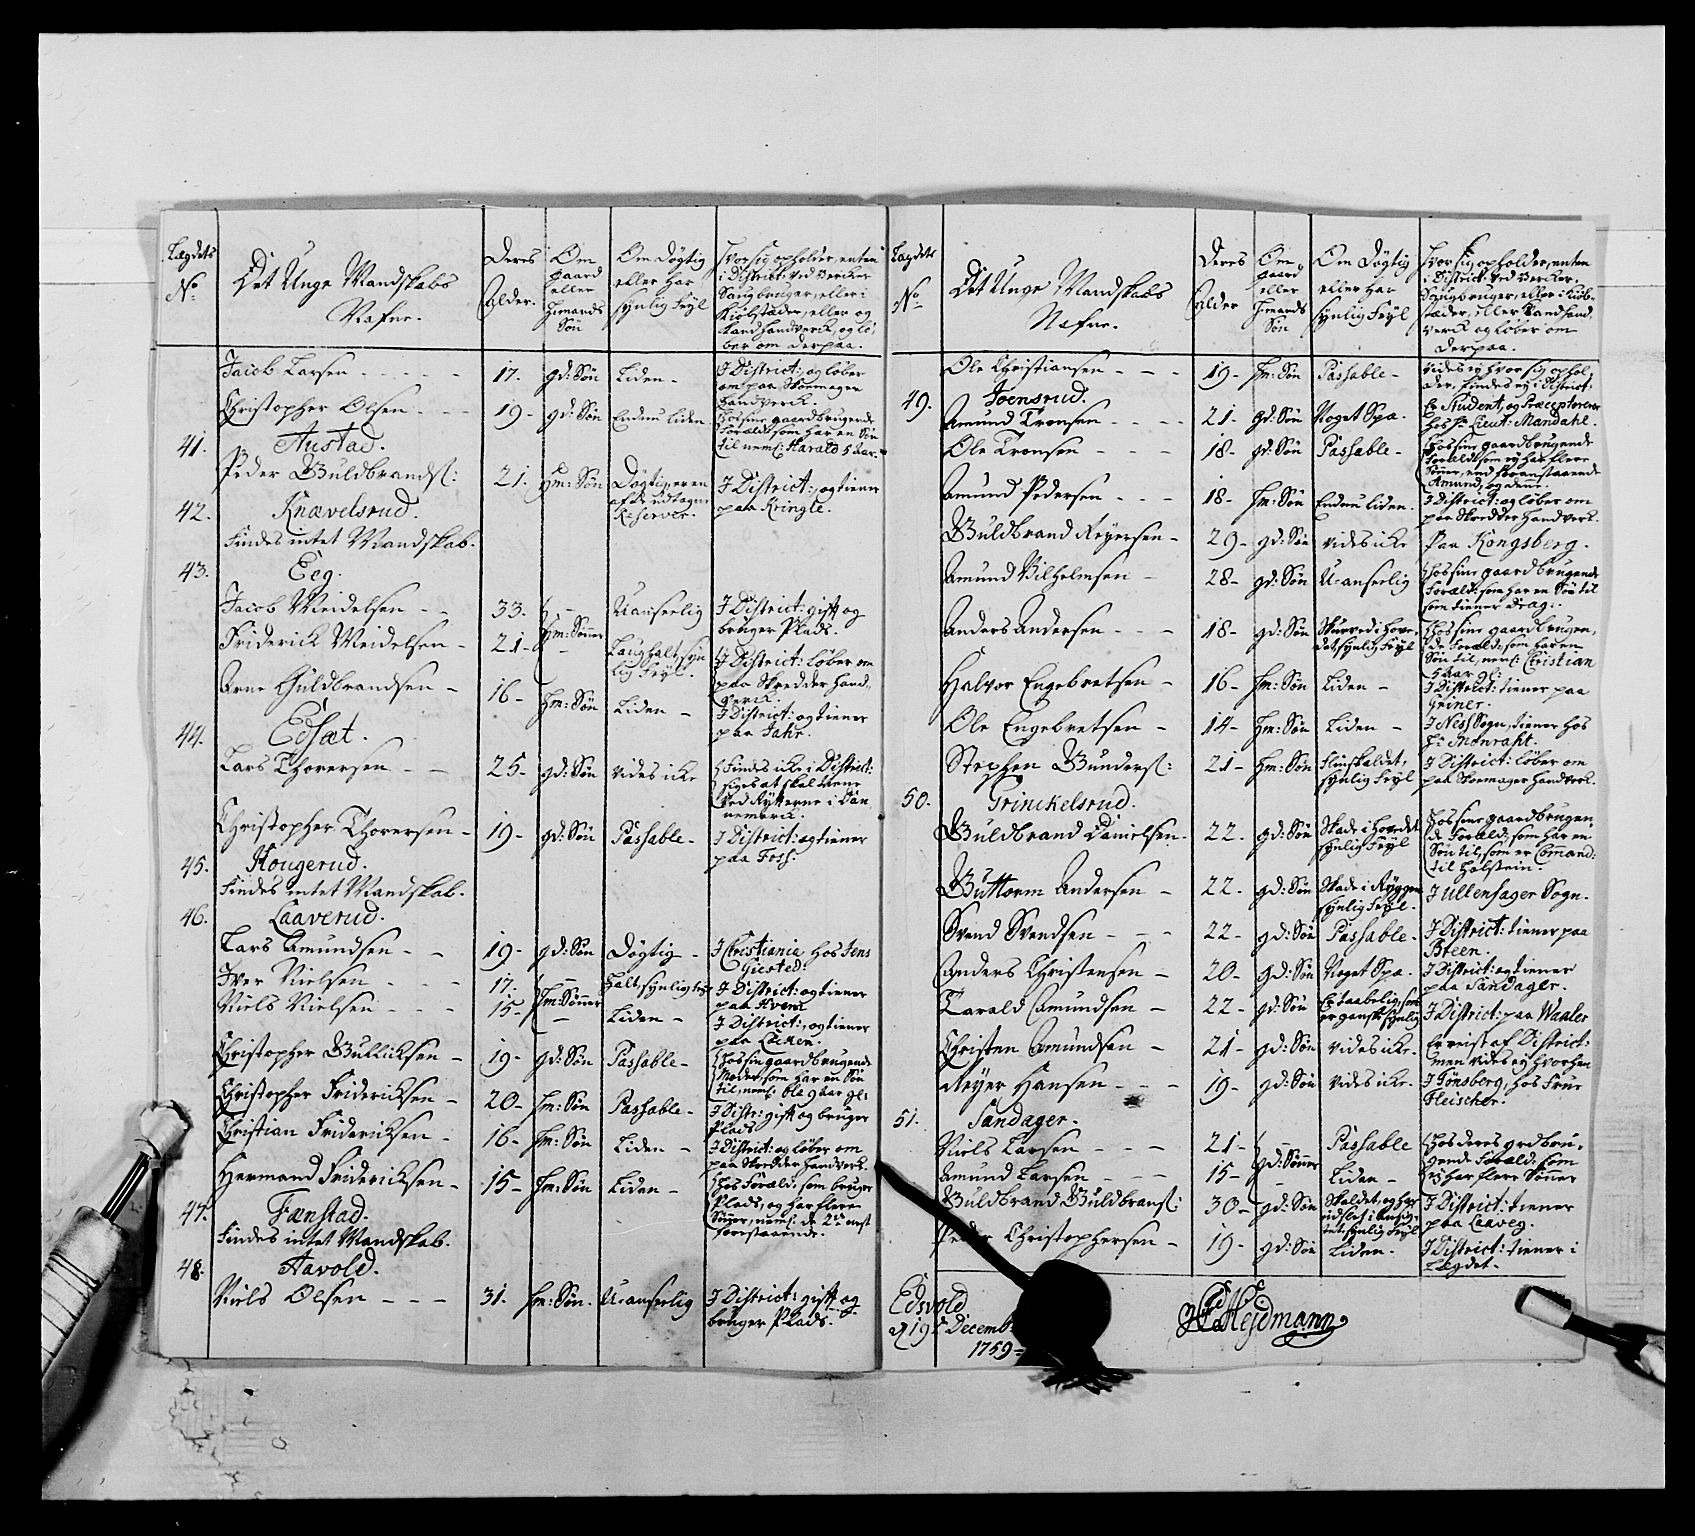 Lægdets
No
Det Unge Mandskabs
Nafne.
Deres
Alder.
Om
gaard
eller
Huusmands
Søn
Om Døgtig
eller har
synlig Feyl
hvor sig opholder, enten
i District: ved Verker
Saugbruger, eller i
Kiøbstæder, eller og
Landhandverk, og lø
ber om derpaa.
Jacob Larsen - - - - 17. gd: Søn Liden - J District: og løber
om paa Skoemager
handverck.
Christopher Olsen - - - 19 - gd: Søn Endnu liden hos sine gaardbrugende
Forældr: som har en Søn
til neml: Harald 5 aar.
41. Austad.
Peder Guldbrands: 21. hm: Søn Døgtig, er en
af de udtagne
Reserver. J District:, og tiener
paa Kringle.
42. Knævelsrud.
Findes intet Mandskab.
43. Eeg.
Jacob Meidelsen - - 33. Uanseelig J District: gift og
bruger Plads.
Friderick Meidelsen - 21 - hm: Sønner Laughalt, syn
lig Feyl. J District: løber om
paa Skredder Hand-
verck.
Arne Guldbrandsen - 16 - hm: Søn Liden - J District: og tiener
paa Jahr.
44. Edsæt.
Lars Thoresen - - 25 - gd: Søn vides icke Findes icke i District:
siges at skal tiene
ved Rytterne i Dan
nemarck.
Christopher Thoresen - 19 - gd: Søn Passable - J District: og tiener
paa Foss:
45. Hougerud.
Findes intet Mandskab.
46. Laaverud.
Lars Amundsen - - 19 - gd: Søn Døgtig - J Christiania hos Jens
Giested:
Iver Nielsen - - - 17. hm: Sønner Halt, synlig feyl J District: og tiener
paa Hvam
Niels Nielsen - - - 15 - Liden - J District:, og tiener
paa Løcken.
Christopher Gulliksen - 19 - gd: Søn Passable - hos sin gaardbrugende
Moder, som har en Søn
til, neml: Ole 9 aar gl:
Christopher Fridericksen - 20 - hm: Søn Passable - J Distr: gift og bruger
Plads
Christian Fridericksen - 16 - hm: Søn Liden - J District: og løber om
paa Skredder handverk.
Hermand Fridericksen - 15 - hm: Søn Liden - hos Foræld: som bruger
Plads, og har flere
Sønner, neml: de 2de næst
forestaaende.
47. Fænstad.
Findes intet Mandskab.
48. Aavold.
Niels Olsen - - - 31. hm: Søn. Uanseelig J District: gift og
bruger Plads.
Lægdets
No
Det Unge Mandskabs
Nafne.
Deres
Alder
Om
gaard
eller
Huusmands
Søn
Om Døgtig
eller har
synlig Feyl
hvor sig opholder, enten
i District: ved Verker,
Saugbruger, eller i Kiøb-
stæder, eller Landhand
verk og løber om
derpaa.
Ole Christiansen - - - 19 - hm: Søn Passable - vides ey hvor sig ophol
der, findes ey i District:
49. Joensrud.
Amund Tronsen - - - - 21. gd: Søn Noget Spæ. Er Student, og Præceptorerer
hos Hr Lieut: Mandahl.
Ole Tronsen - - - 18 - gd: Søn Passable - hos sine gaardbrugende
Foræld: som ey har flere
Sønner, end foranstaaende
Amund, og denne.
Amund Pedersen - - - 18 - hm: Søn Endnu liden. J District: og løber om
paa Skredder handverk.
Guldbrand Reyersen - 29 - gd: Søn vides icke Paa Kongsberg.
Amund Vilhelmsen - 28 - gd: Søn Uanseelig hos sine gaardbrugende
Foræld: som har en Søn til
som tiener Drag:
Anders Andersen - - - 18 - gd: Søn Skurved i Hove
det, synlig Feyl hos sine gaardbrugen,
de Foræld: som har en
Søn til, neml: Christian
5 aar gl:
Halvor Engebretsen - 16 - hm: Søn Liden - J District: tiener paa
Griner.
Ole Engebretsen - 14 - hm: Søn Liden - J Ness Sogn, tiener hos
Hr Monraht.
Stephen Gunders: 21 - hm: Søn fliinskaldet,
synlig Feyl J District: løber om
paa Skoemager handverk.
50. Grinckelsrud.
Guldbrand Danielsen - 22. gd: Søn Skade i Hovedet
synlig Feyl hos sine gaardbrugen
de Foræld: som har en
Søn til, som er Command:
til Holstein.
Guttorm Andersen - 22. gd: Søn Skade i Ryggen
synlig Feyl. J Ullensager Sogn.
Svend Svendsen - - - 22 - gd: Søn Passable - J District: tiener paa
Steen.
Anders Christensen - 20 - gd: Søn Noget Spæ. J District: og tiener
paa Sandager.
Tarald Amundsen - 22 - gd: Søn Er taabelig, som
er gansk synlig J District: paa Waaler
Christen Amundsen - 21 - gd: Søn vides icke. Er reist af District:
men vides ey hvorhen
Reyer Hansen - - - 19 - gd: Søn vides icke. J Tønsberg, hos Frue
Fleischer.
51. Sandager.
Niels Larsen - - - 21 - gd: Sønner Passable hos deres grdbru-
gende Foræld: som
ey har flere Sønner
Amund Larsen - - - 15 - Liden -
Guldbrand Guldbrans: 30 - gd: Søn Skaldet, og har
synlig Feyl J District: tiener
paa Laaveg.
Peder Christophersen - 19 - gd: Søn Liden. J District: tiener i
Lægdet.
Edsvold
d 19de Decemb:
1759 -
Hejdmann